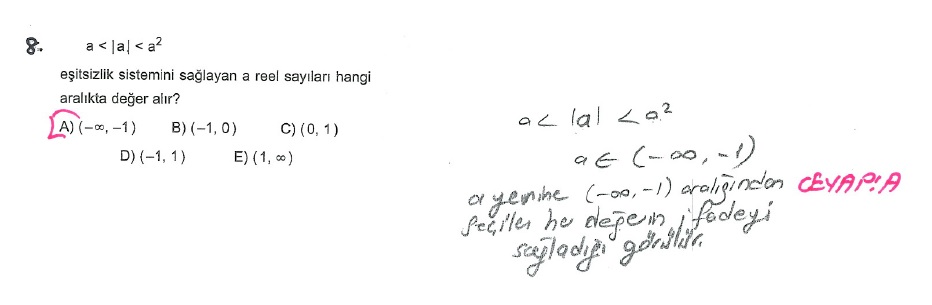 8.
a < |a| < a²
eşitsizlik sistemini sağlayan a reel sayıları hangi
aralıkta değer alır?
A) (−∞, −1) B) (−1, 0) C) (0, 1)
D) (−1, 1) E) (1, ∞)
a < |a| < a²
a ∈ (−∞, −1)
a yerine (−∞, −1) aralığından
seçilen he değerin ifadeyi
sağladığı görülür.
CEVAP:A